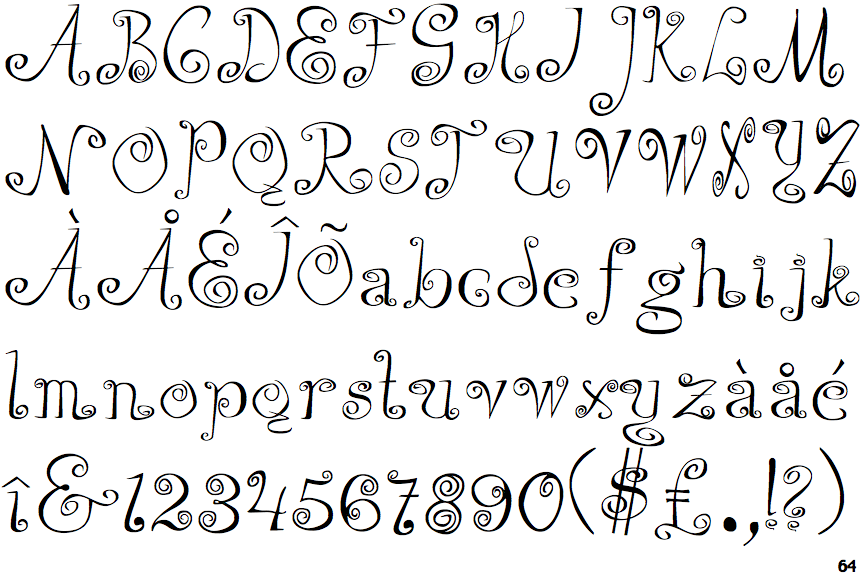 ABCDEFGHIJKLM
NOPQRSTUVWXYZ
ÀÅÉÎÕabcdefghijk
lmnopqrstuvwxyzàåé
î&1234567890($£.,!?)
64